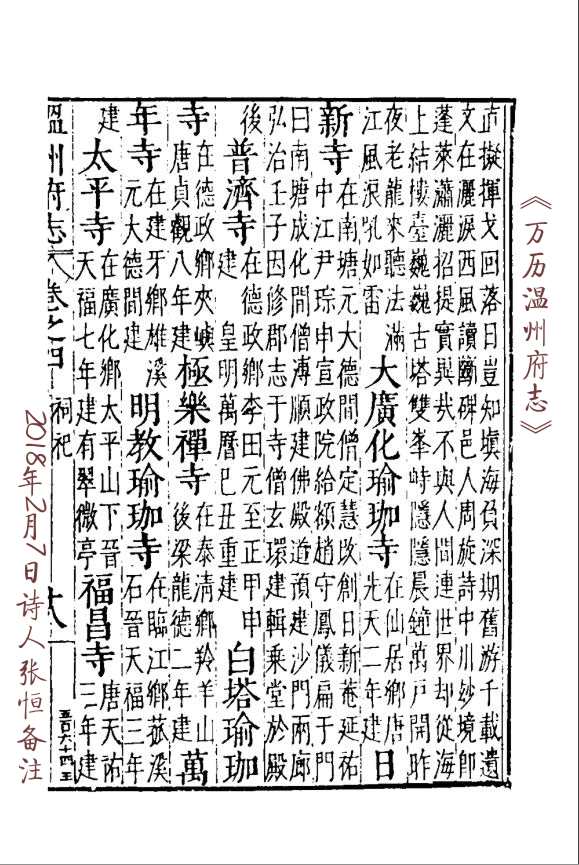 《万历温州府志》
直擬揮戈回落日豈知塡海負深期舊游千載遺
文在灑淚西風讀斷碑邑人周旋詩中川紗境即
蓬萊瀟灑招提實與㢤不與人間連世界却從海
上結樓臺巍巍古塔雙峯峙隱隱晨鐘萬戶開昨
夜老龍來聽法滿江風浪吼如雷 大廣化瑜珈寺 在仙居鄉唐先天二年建 日
新寺 在南塘元大德間僧定慧改創日新菴延祐中江尹琮申宣政院給額趙守鳳儀扁于門
曰南塘成化間僧溥順建佛殿道預建沙門兩廊
弘治壬子因修郡志于寺僧玄環建輯乘堂於殿
後 普濟寺 在德政鄉李田元至正甲申建 皇明萬曆己丑重建 白塔瑜珈
寺 在德政鄉夾嶼唐貞觀八年建 極樂禪寺 在泰清鄉羚羊山後梁龍德二年建 萬
年寺 在建牙鄉雄溪元大德間建 明教瑜珈寺 在臨江鄉菰溪石晉天福三年
建 太平寺 在廣化鄉太平山下晉天福七年建有翠微亭 福昌寺 唐天祐三年建
溫州府志 卷之四 祠祀 十八 五百六十四 王
2018年2月7日诗人张恒备注